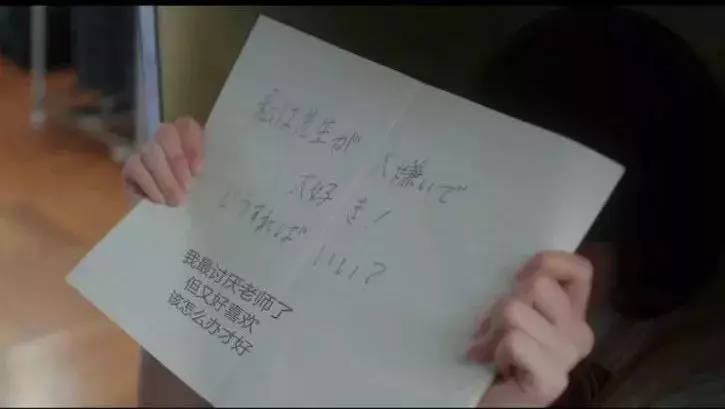 私は先生が
嫌いで
大好き!
どうすればいい?
我最讨厌老师了
但又好喜欢
该怎么办才好